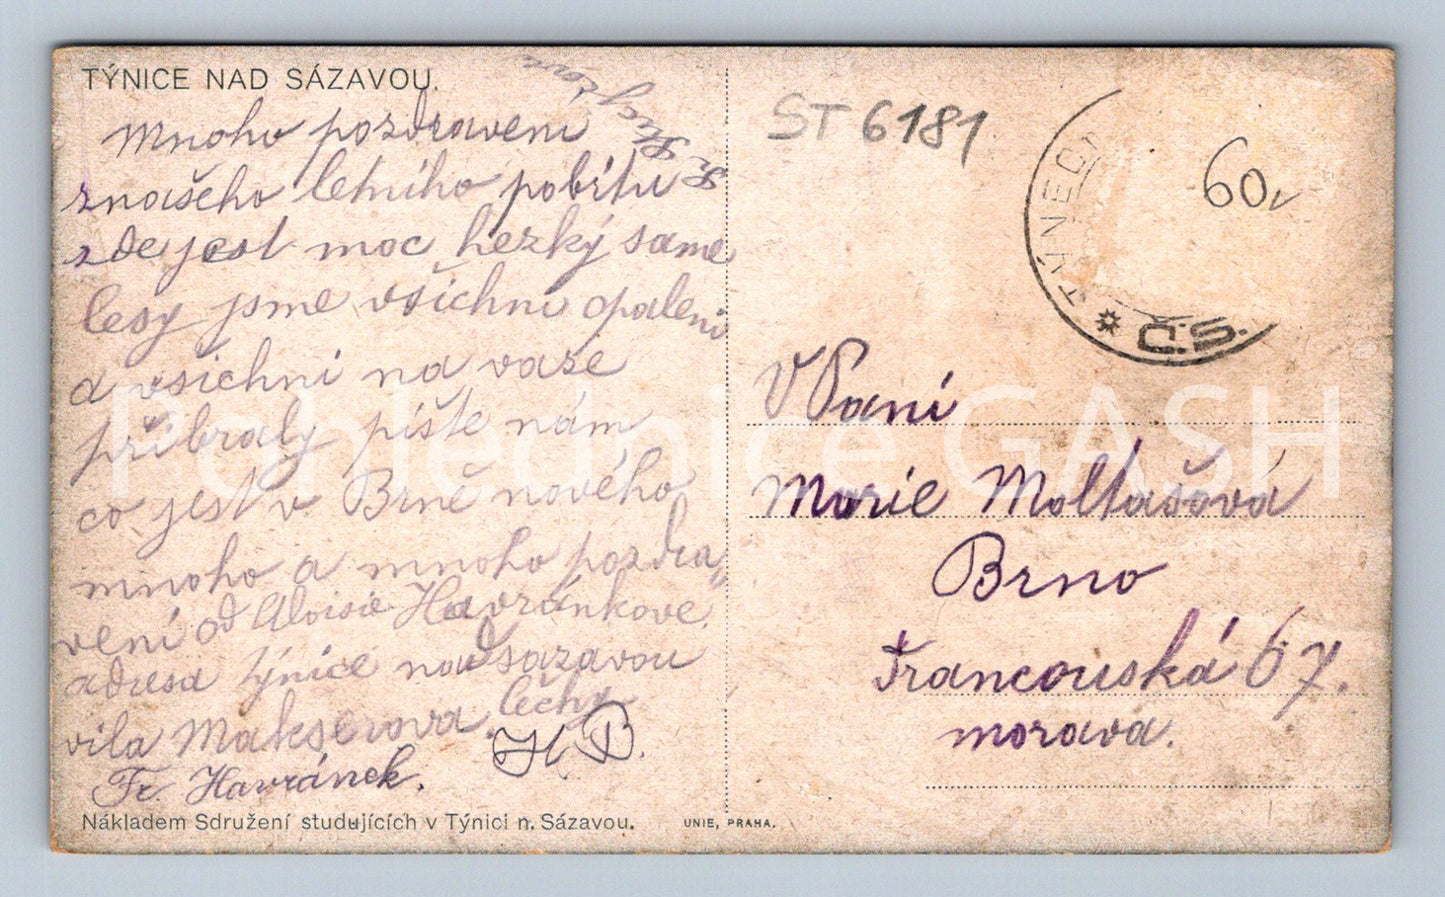 TÝNICE NAD SÁZAVOU.
Mnoho pozdravení
z našeho letního pobitu
zde jest moc hezký same
lesy jsme všichni opaleni
a vsichni na vaze
přibraly pište nám
co jest v Brně nového
mnoho a mnoho pozdra„
vení od Aloisie Havránkove.
adresa týnice nad sazavou
čechy
vila Makserova.
H. B.
Fr. Havránek.
Nákladem Sdružení studujících v Týnici n. Sázavou.
UNIE, PRAHA.
ST 6181
60,
TÝNEC
Č.S.
V Paní
Marie Moltašová
Brno
Francouská 67.
morava.
Pohlednice GASH